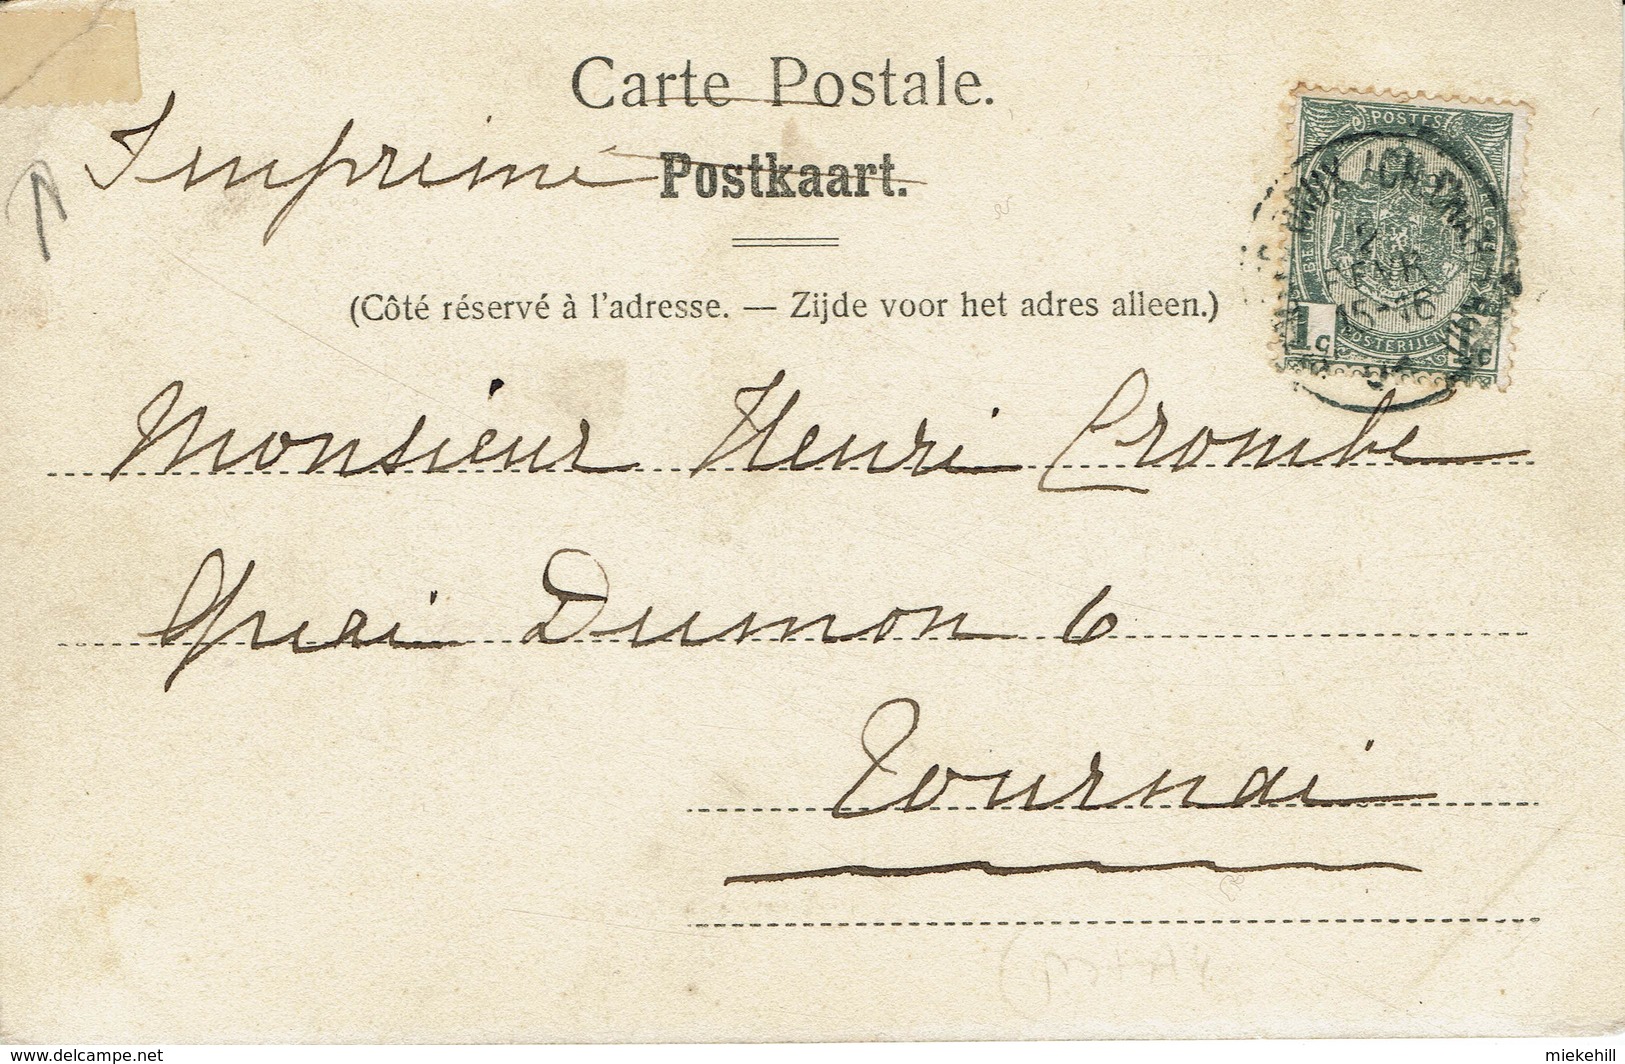 Carte Postale.
Imprimé
Postkaart.
(Côté réservé à l'adresse. — Zijde voor het adres alleen.)
POSTES
2
FEVR
15-16
1c 1c
POSTERIJEN
Monsieur Henri Crombe
Quai Dumon 6
Tournai
www.delcampe.net
miekehill